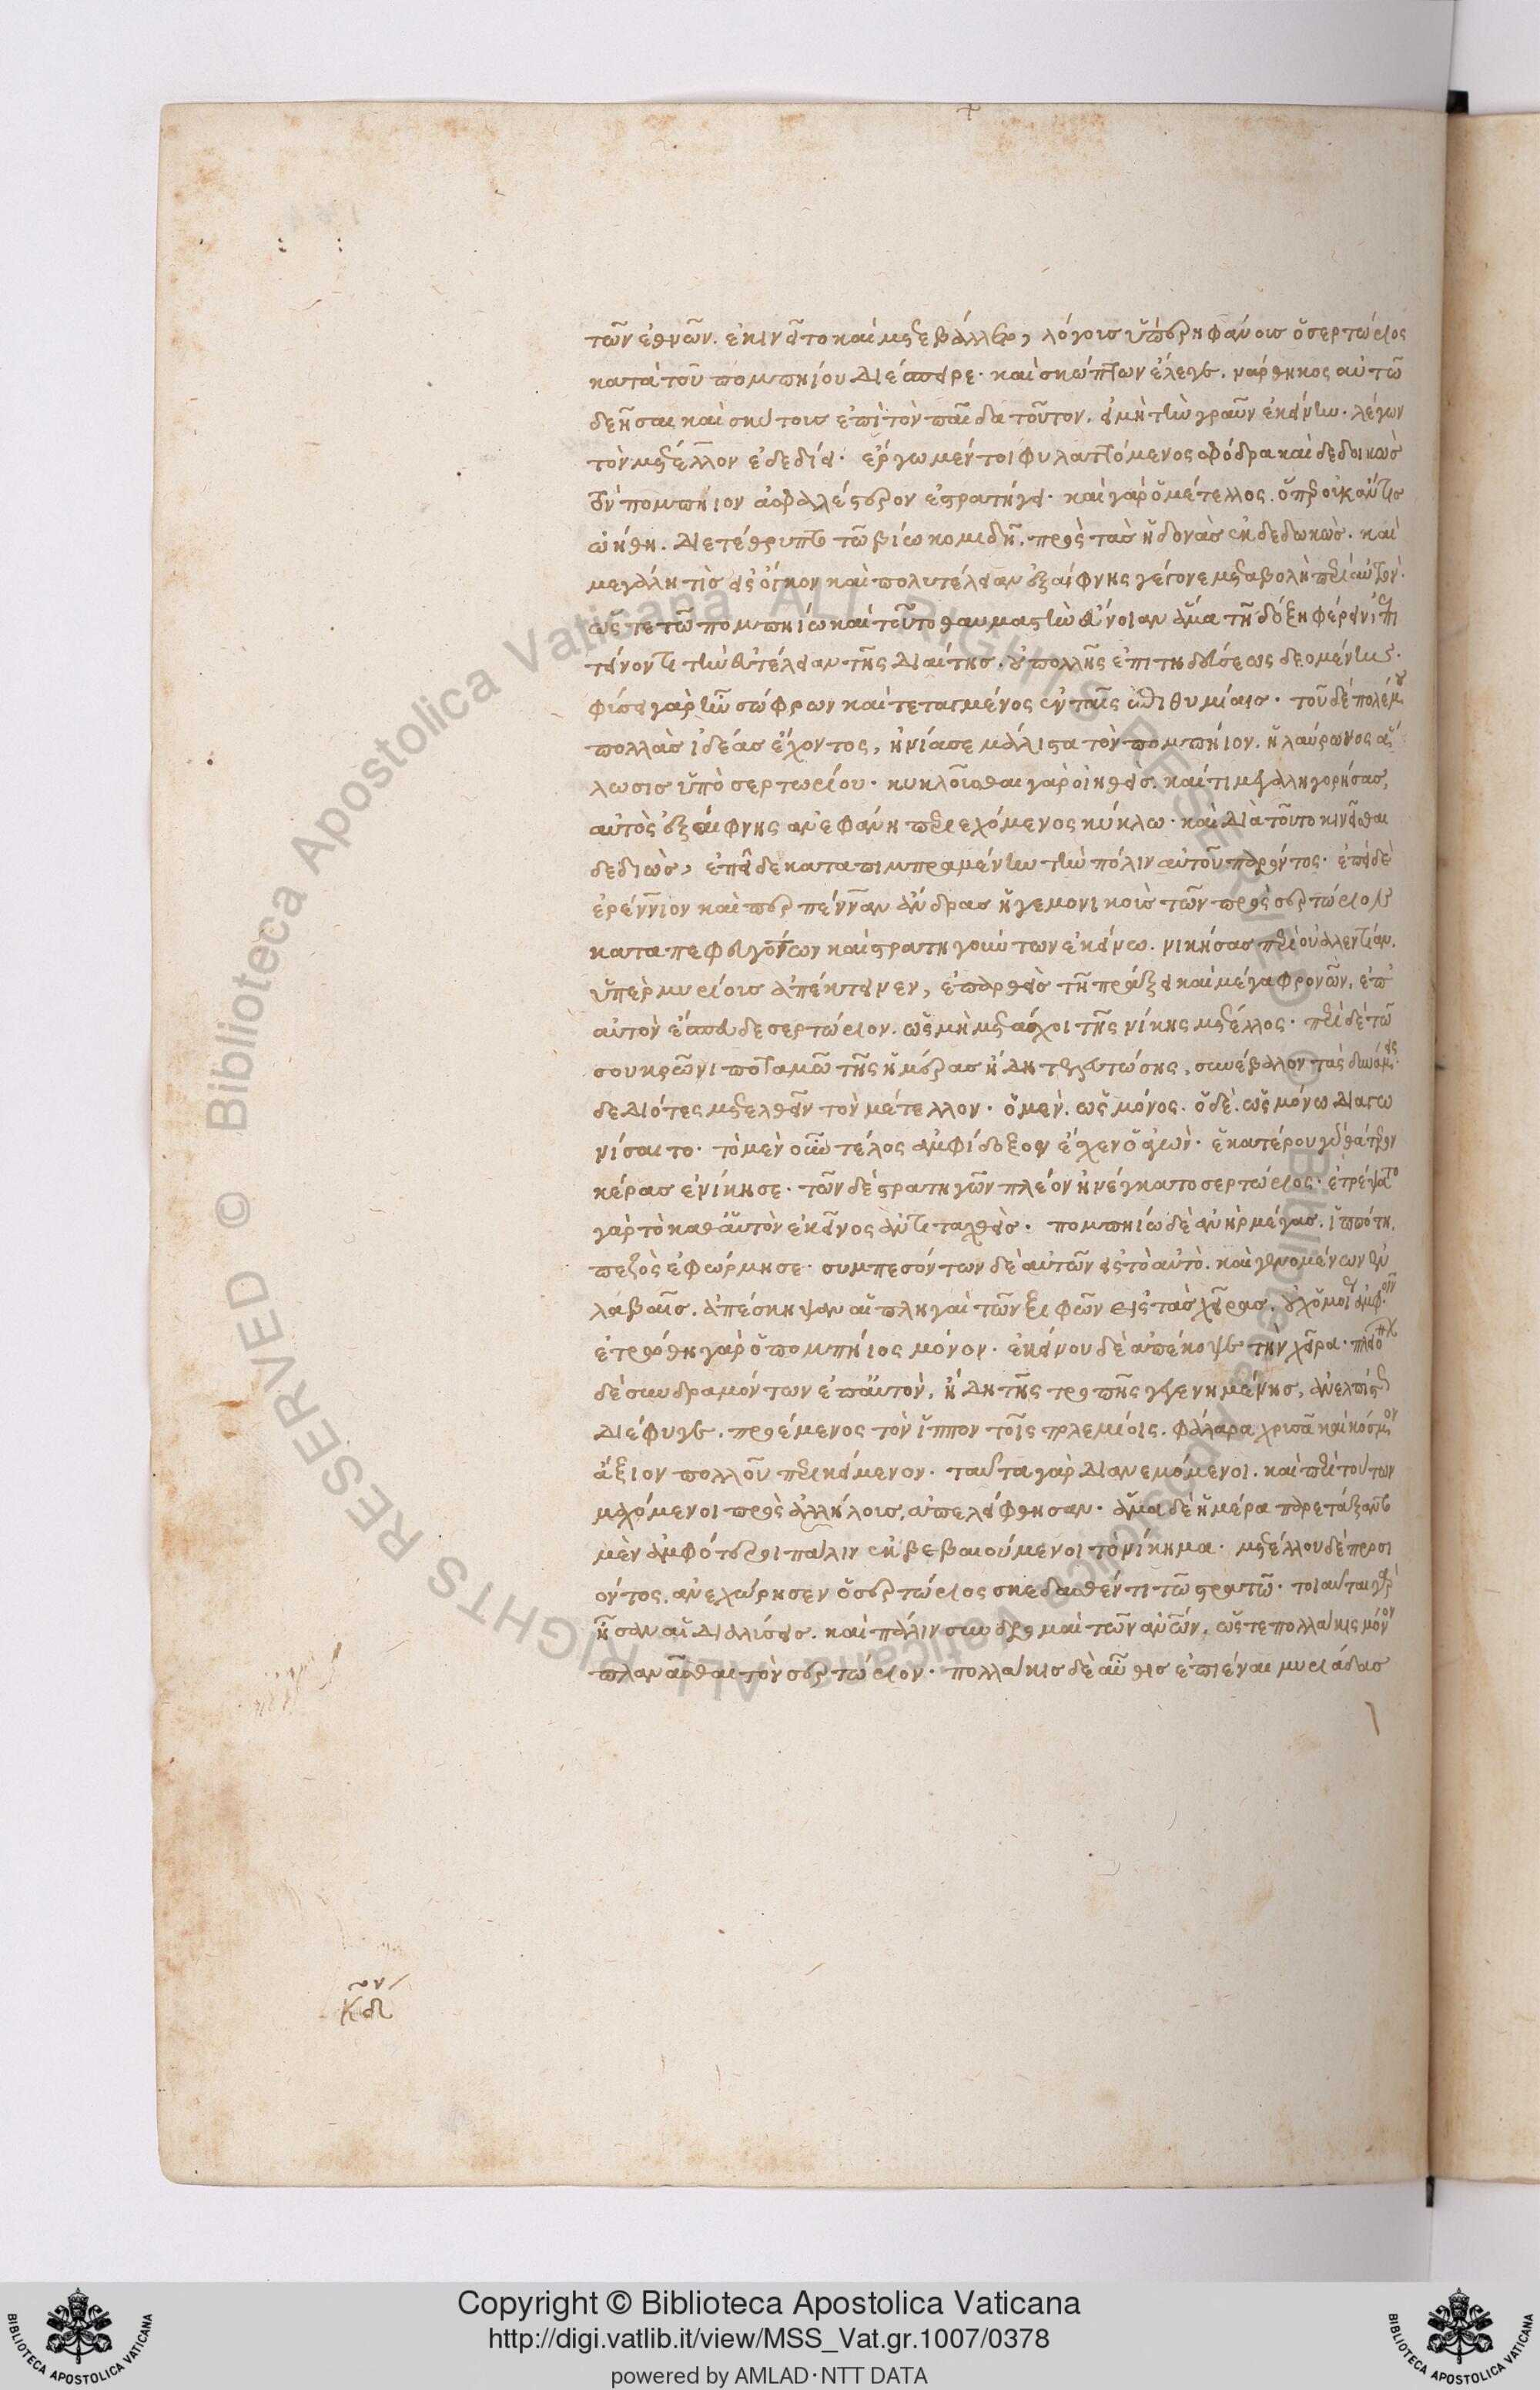 τῶν ἐθνῶν. ἐκινεῖτο καὶ μετεβάλλετο, λόγοις ὑπερηφάνοις ὁ σερτώριος
κατὰ τοῦ πομπηίου διέσπειρε. καὶ σκώπτων ἔλεγε. νάρθηκος αὐτῶ
δεῆσαι καὶ σκύτους ἐπὶ τὸν παῖδα τοῦτον. εἰ μὴ τὴν γραῦν ἐκείνην. λέγων
τὸν μετέλλον ἐδεδίει. ἔργω μέντοι φυλαττόμενος σφόδρα καὶ δεδοικὼς
τὸν πομπήιον ἀσφαλέστερον ἐστρατήγει. καὶ γὰρ ὁ μέτελλος. ὅπερ οὐκ ἄν τις
ὠήθη. διετέθρυπτο τῶ βίω κομιδῆ. πρὸς τὰς ἡδονὰς ἐνδεδωκὼς. καὶ
μεγάλη τὶς εἰς ὄγκον καὶ πολυτέλειαν ἐξαίφνης γέγονε μεταβολὴ περὶ αὐτὸν.
ὥς τε τῶ πομπηίω καὶ τοῦτο θαυμαστὴν εὔνοιαν ἅμα τῆ δόξη φέρειν ἐπι
τείνοντι τὴν εὐτέλειαν τῆς διαίτης. οὐ πολλῆς ἐπιτηδεύσεως δεομένην.
φύσει γὰρ ἦν σώφρων καὶ τεταγμένος ἐν ταῖς ἐπιθυμίαις. τοῦ δὲ πολέμου
πολλὰς ἰδέας ἔχοντος, ἠνίασε μάλιστα τὸν πομπήιον. ἡ λαύρωνος ἅ
λωσις ὑπὸ σερτωρίου. κυκλοῦσθαι γὰρ οἰηθεὶς. καί τι μεγαληγορήσας,
αὐτὸς ἐξαίφνης ἀνεφάνη περιεχόμενος κύκλω. καὶ διὰ τοῦτο κινεῖσθαι
δεδιὼς, ἐπεῖδε καταπιμπραμένην τὴν πόλιν αὐτοῦ παρόντος. ἐπεὶ δὲ
ἐρέννιον καὶ περπένναν ἄνδρας ἡγεμονικοὺς τῶν πρὸς σερτώριον
καταπεφευγότων καὶ στρατηγούντων ἐκείνω. νικήσας περὶ οὐαλεντίαν.
ὑπὲρ μυρίους ἀπέκτεινεν, ἐπαρθεὶς τῆ πράξει καὶ μέγα φρονῶν. ἐπ'
αὐτὸν ἔσπευδε σερτώριον. ὡς μὴ μετάσχοι τῆς νίκης μετέλλος. περὶ δὲ τῶ
σουκρῶνι ποταμῶ τῆς ἡμέρας ἤδη τελευτώσης, συνέβαλον τὰς δυνάμεις.
δεδιότες μετελθεῖν τὸν μέτελλον. ὁ μὲν. ὡς μόνος. ὁ δὲ. ὡς μόνω διαγω
νίσαιτο. τὸ μὲν οὖν τέλος ἀμφίδοξον ἔσχεν ὁ ἀγὼν. ἑκατέρου γὰρ θάτερον
κέρας ἐνίκησε. τῶν δὲ στρατηγῶν πλέον ἠνέγκατο σερτώριος. ἐτρέψατο
γὰρ τὸ καθ' αὑτὸν ἐκεῖνος ἀντιταχθεὶς. πομπηίω δὲ ἀνὴρ μέγας. ἱππότη.
πεζὸς ἐφώρμησε. συμπεσόντων δὲ αὐτῶν εἰς τὸ αὐτὸ. καὶ γενομένων ἐν
λαβαῖς. ἀπέσκηψαν αἱ πληγαὶ τῶν ξιφῶν εἰς τὰς χεῖρας. οὐχ ὁμοίως ἀμφοῖν
ἐτρώθη γὰρ ὁ πομπήιος μόνον. ἐκείνου δὲ ἀπέκοψε τὴν χεῖρα. πλειόνων
δὲ συνδραμόντων ἐπ' αὐτὸν, ἤδη τῆς τροπῆς γεγενημένης, ἀνελπίστως
διέφυγε. προέμενος τὸν ἵππον τοῖς πολεμίοις. φάλαρα χρυσᾶ καὶ κόσμον
ἄξιον πολλοῦ περικείμενον. ταῦτα γὰρ διανεμόμενοι. καὶ περὶ τούτων
μαχόμενοι πρὸς ἀλλήλους, ἀπελείφθησαν. ἅμα δὲ ἡμέρα παρετάξαντο
μὲν ἀμφότεροι πάλιν ἐκβεβαιούμενοι τὸ νίκημα. μετέλλου δὲ προσι
όντος. ἀνεχώρησεν ὁ σερτώριος σκεδασθέντι τῶ στρατῶ. τοιαῦται γὰρ
ἦσαν αἱ διαλύσεις. καὶ πάλιν συνδρομαὶ τῶν αὐτῶν. ὥς τε πολλάκις μόνον
πλανᾶσθαι τὸν σερτώριον. πολλάκις δὲ αὖθις ἐπιέναι μυριάδας
Copyright © Biblioteca Apostolica Vaticana
http://digi.vatlib.it/view/MSS_Vat.gr.1007/0378
powered by AMLAD·NTT DATA